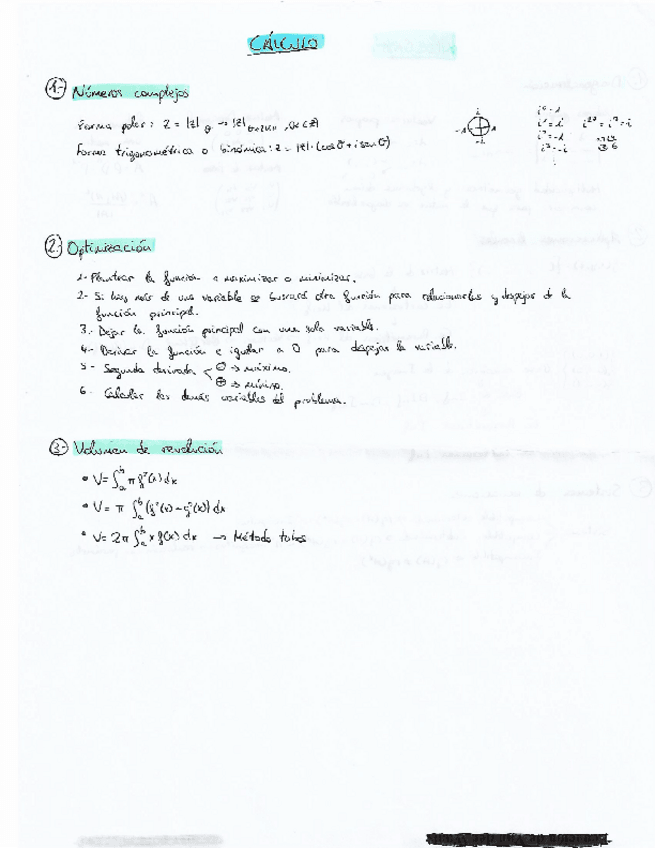 CÁLCULO
1.- Números complejos
Forma polar: z = |z|θ → |z|θ+2kπ, (k ∈ Z)
Forma trigonométrica o binómica: z = |z|·(cos θ + i sen θ)
i
-1 1
-i
i⁰ = 1
i¹ = i
i² = -1
i³ = -i
2.- Optimización
1.- Plantear la función a maximizar o minimizar.
2.- Si hay más de una variable se buscará otra función para relacionarlas y despejar de la
función principal.
3.- Dejar la función principal con una sola variable.
4.- Derivar la función e igualar a 0 para despejar la variable.
5.- Segunda derivada < ⊖ → máximo.
⊕ → mínimo.
6.- Calcular las demás variables del problema.
3.- Volumen de revolución
• V = ∫ₐᵇ π f²(x) dx
• V = π ∫ₐᵇ (f²(x) - g²(x)) dx
• V = 2π ∫ₐᵇ x f(x) dx → Método tubos